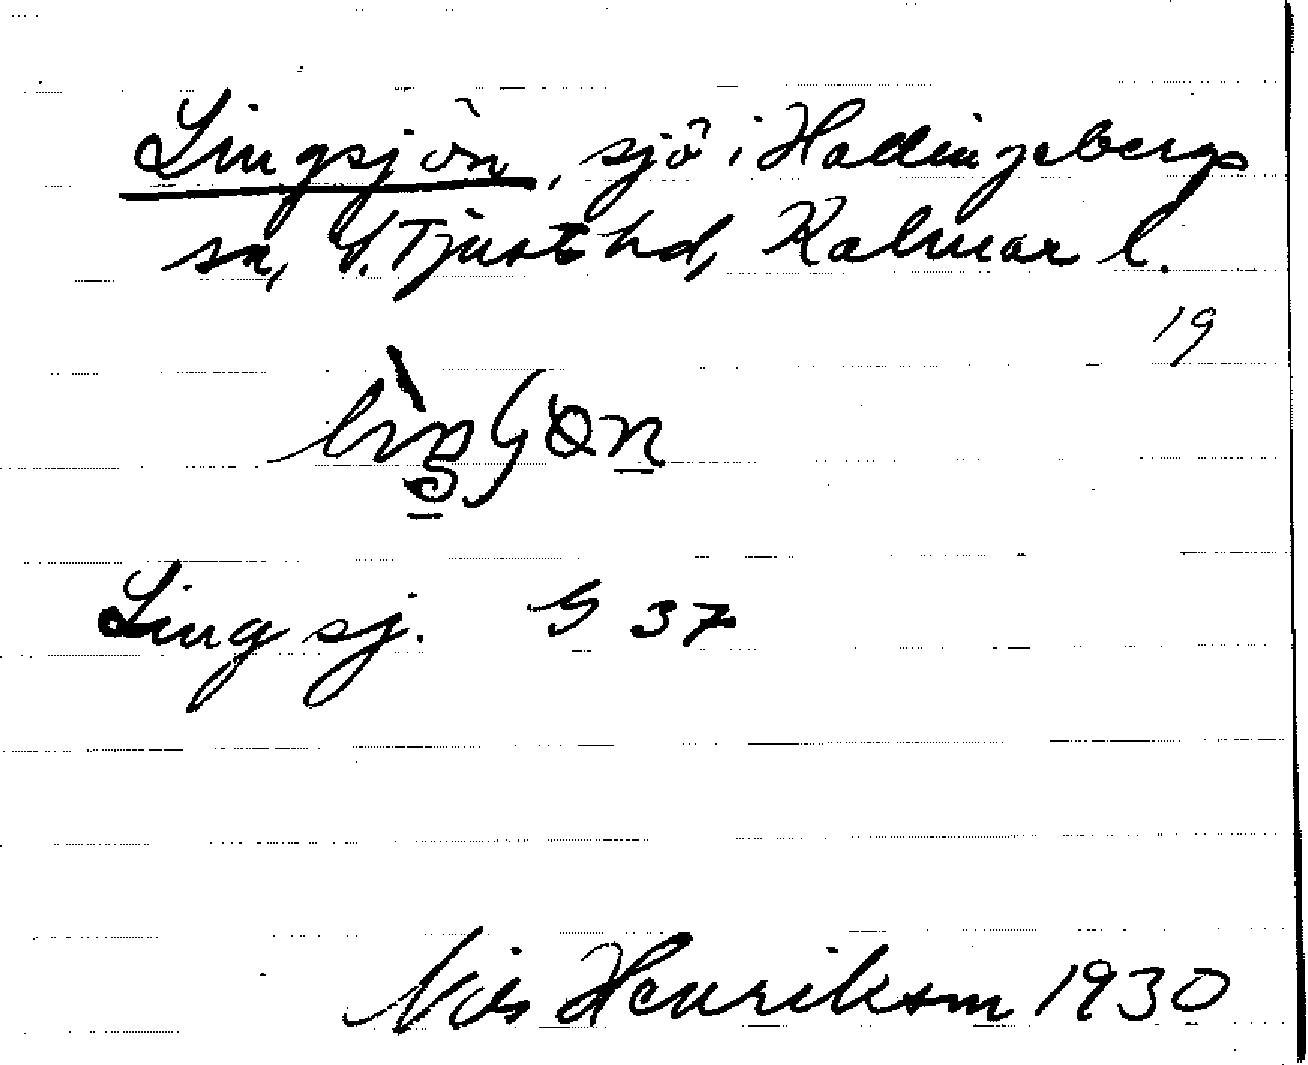 Lingsjön, sjö i Hallingebergs
sn, S. Tjust hd, Kalmar l.
19
Lingsj. G 37
Nils Henrikson 1930